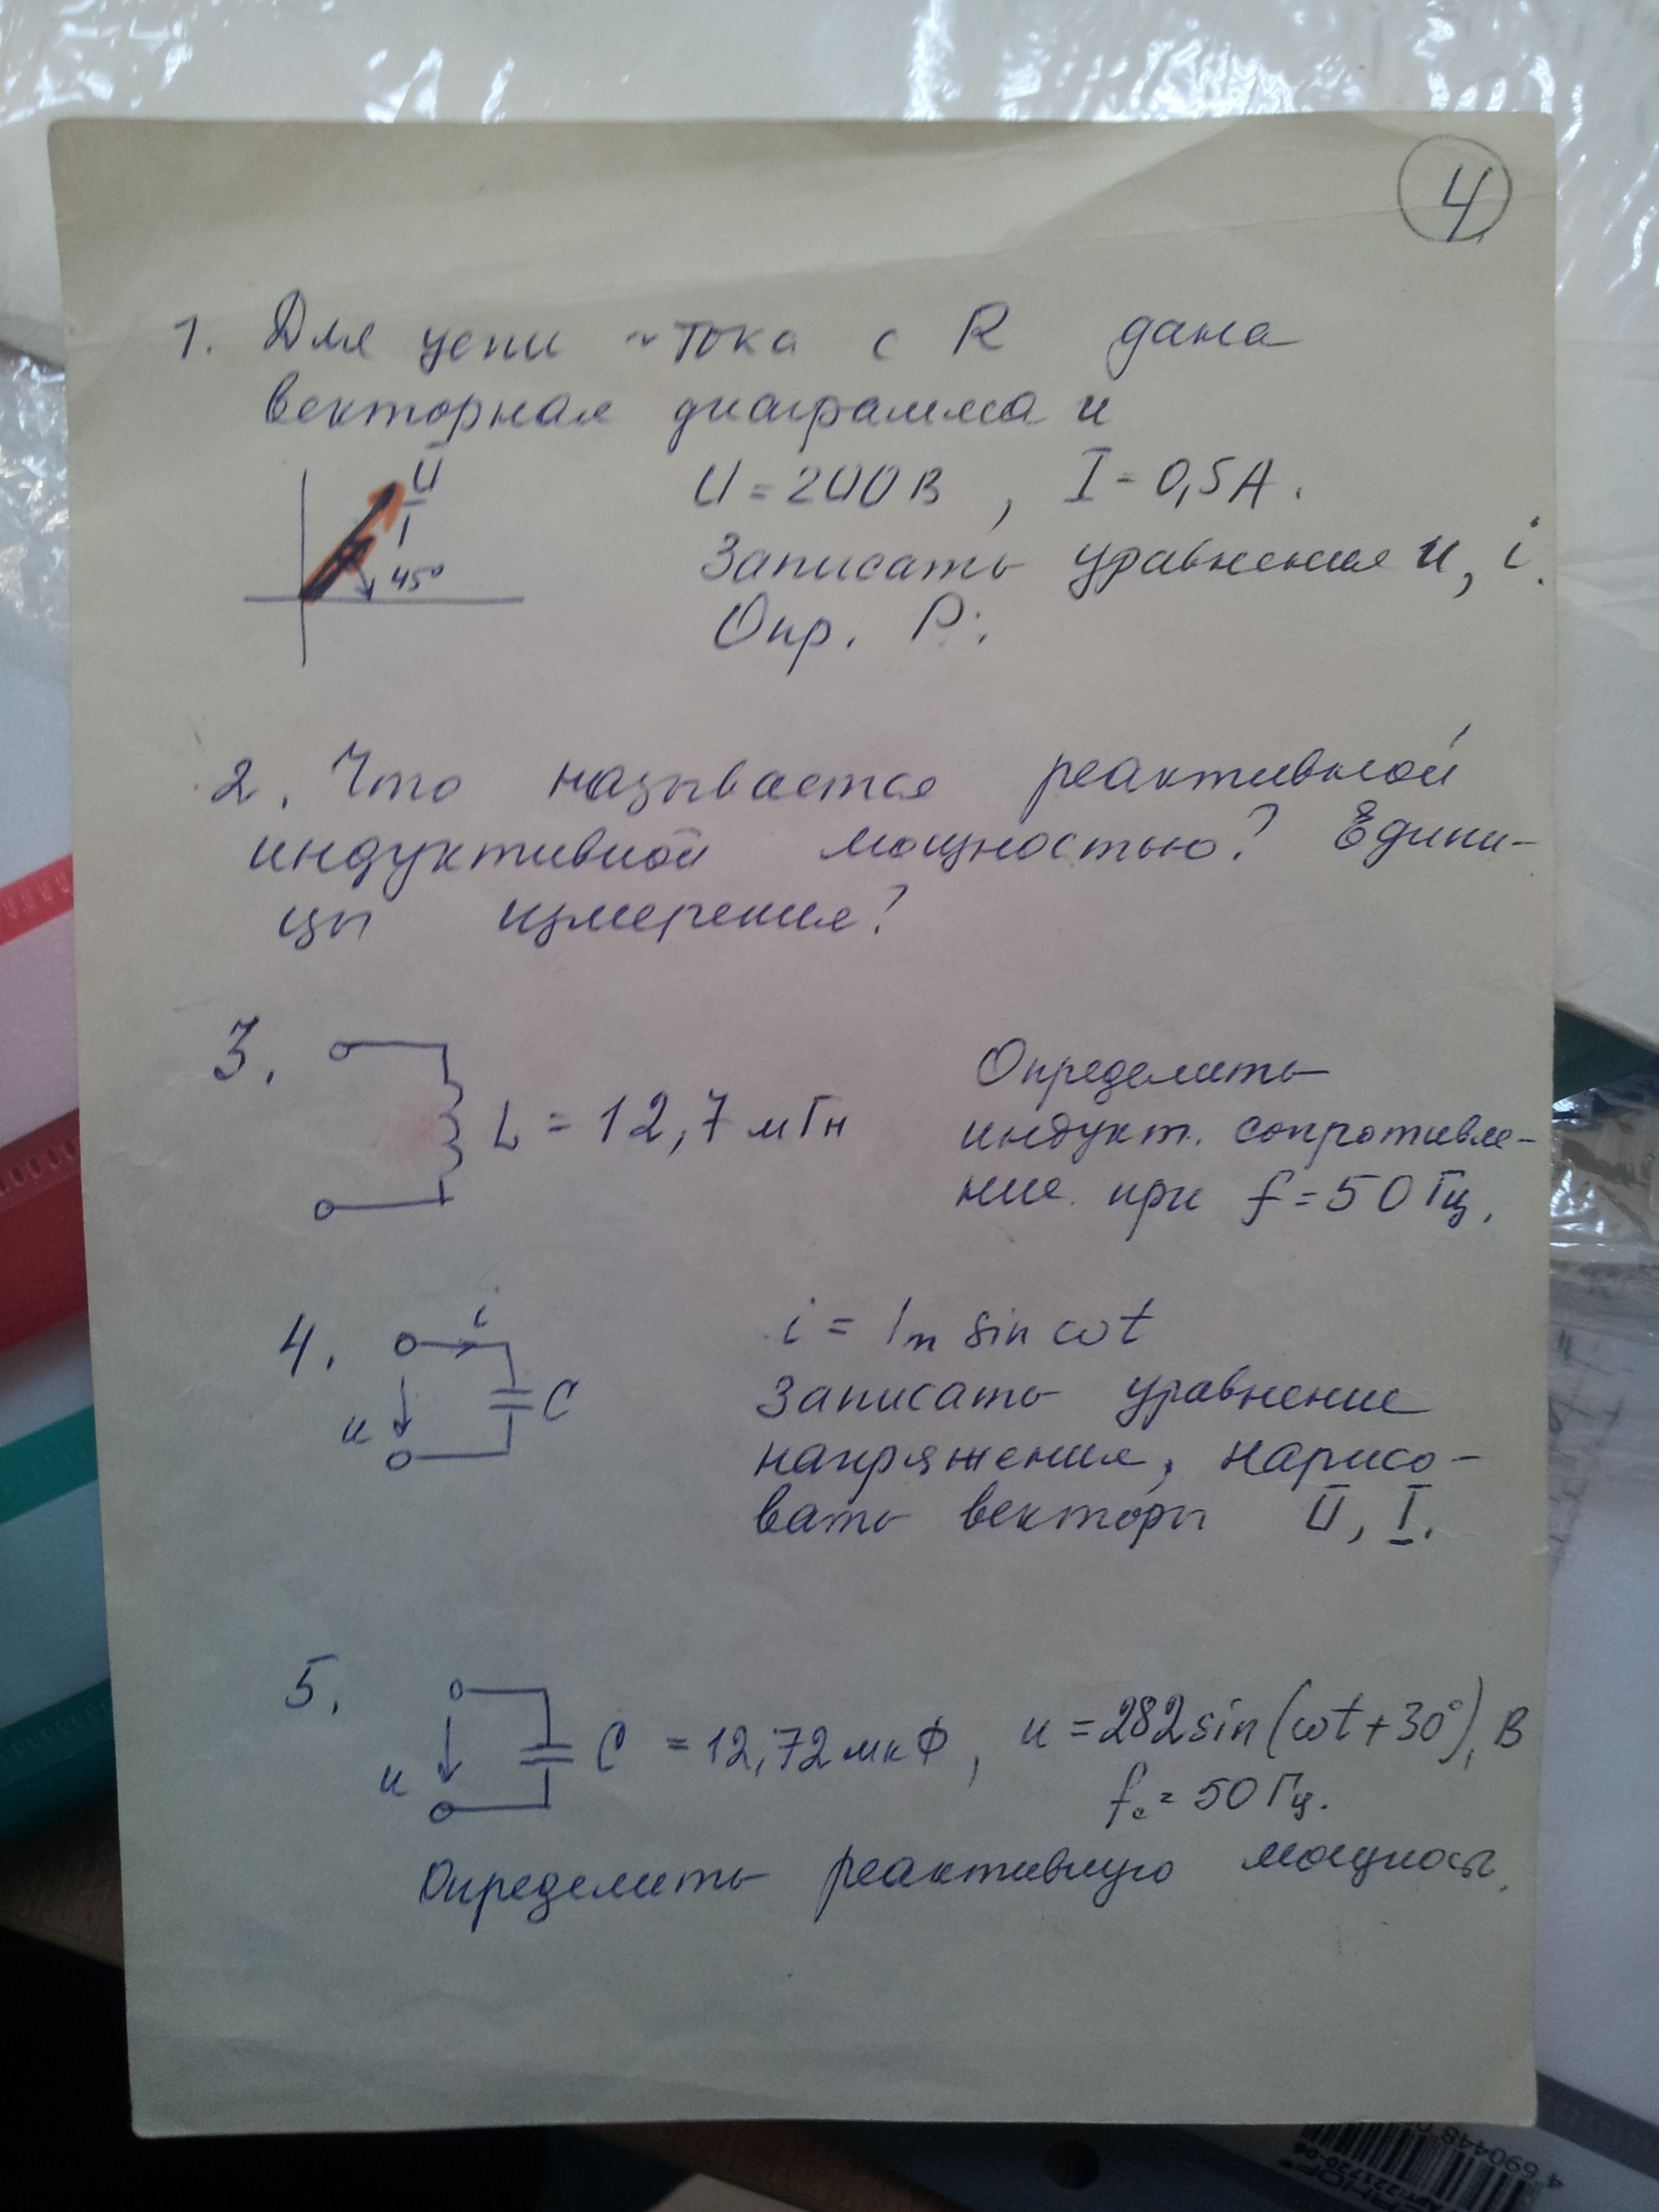 4
1. Для цепи ~ тока с R дана
векторная диаграмма и
U
I
45°
U = 200 В , I = 0,5 А.
Записать уравнения u, i.
Опр. P.
2. Что называется реактивной
индуктивной мощностью? Едини-
цы измерения?
3.
L = 12,7 мГн
Определить
индукт. сопротивле-
ние при f = 50 Гц.
4.
i
u
C
i = Im sin ωt
Записать уравнение
напряжения, нарисо-
вать векторы U, I.
5.
u
C = 12,72 мкФ, u = 282 sin (ωt + 30°), В
fc = 50 Гц.
Определить реактивную
4 690448
221720-06